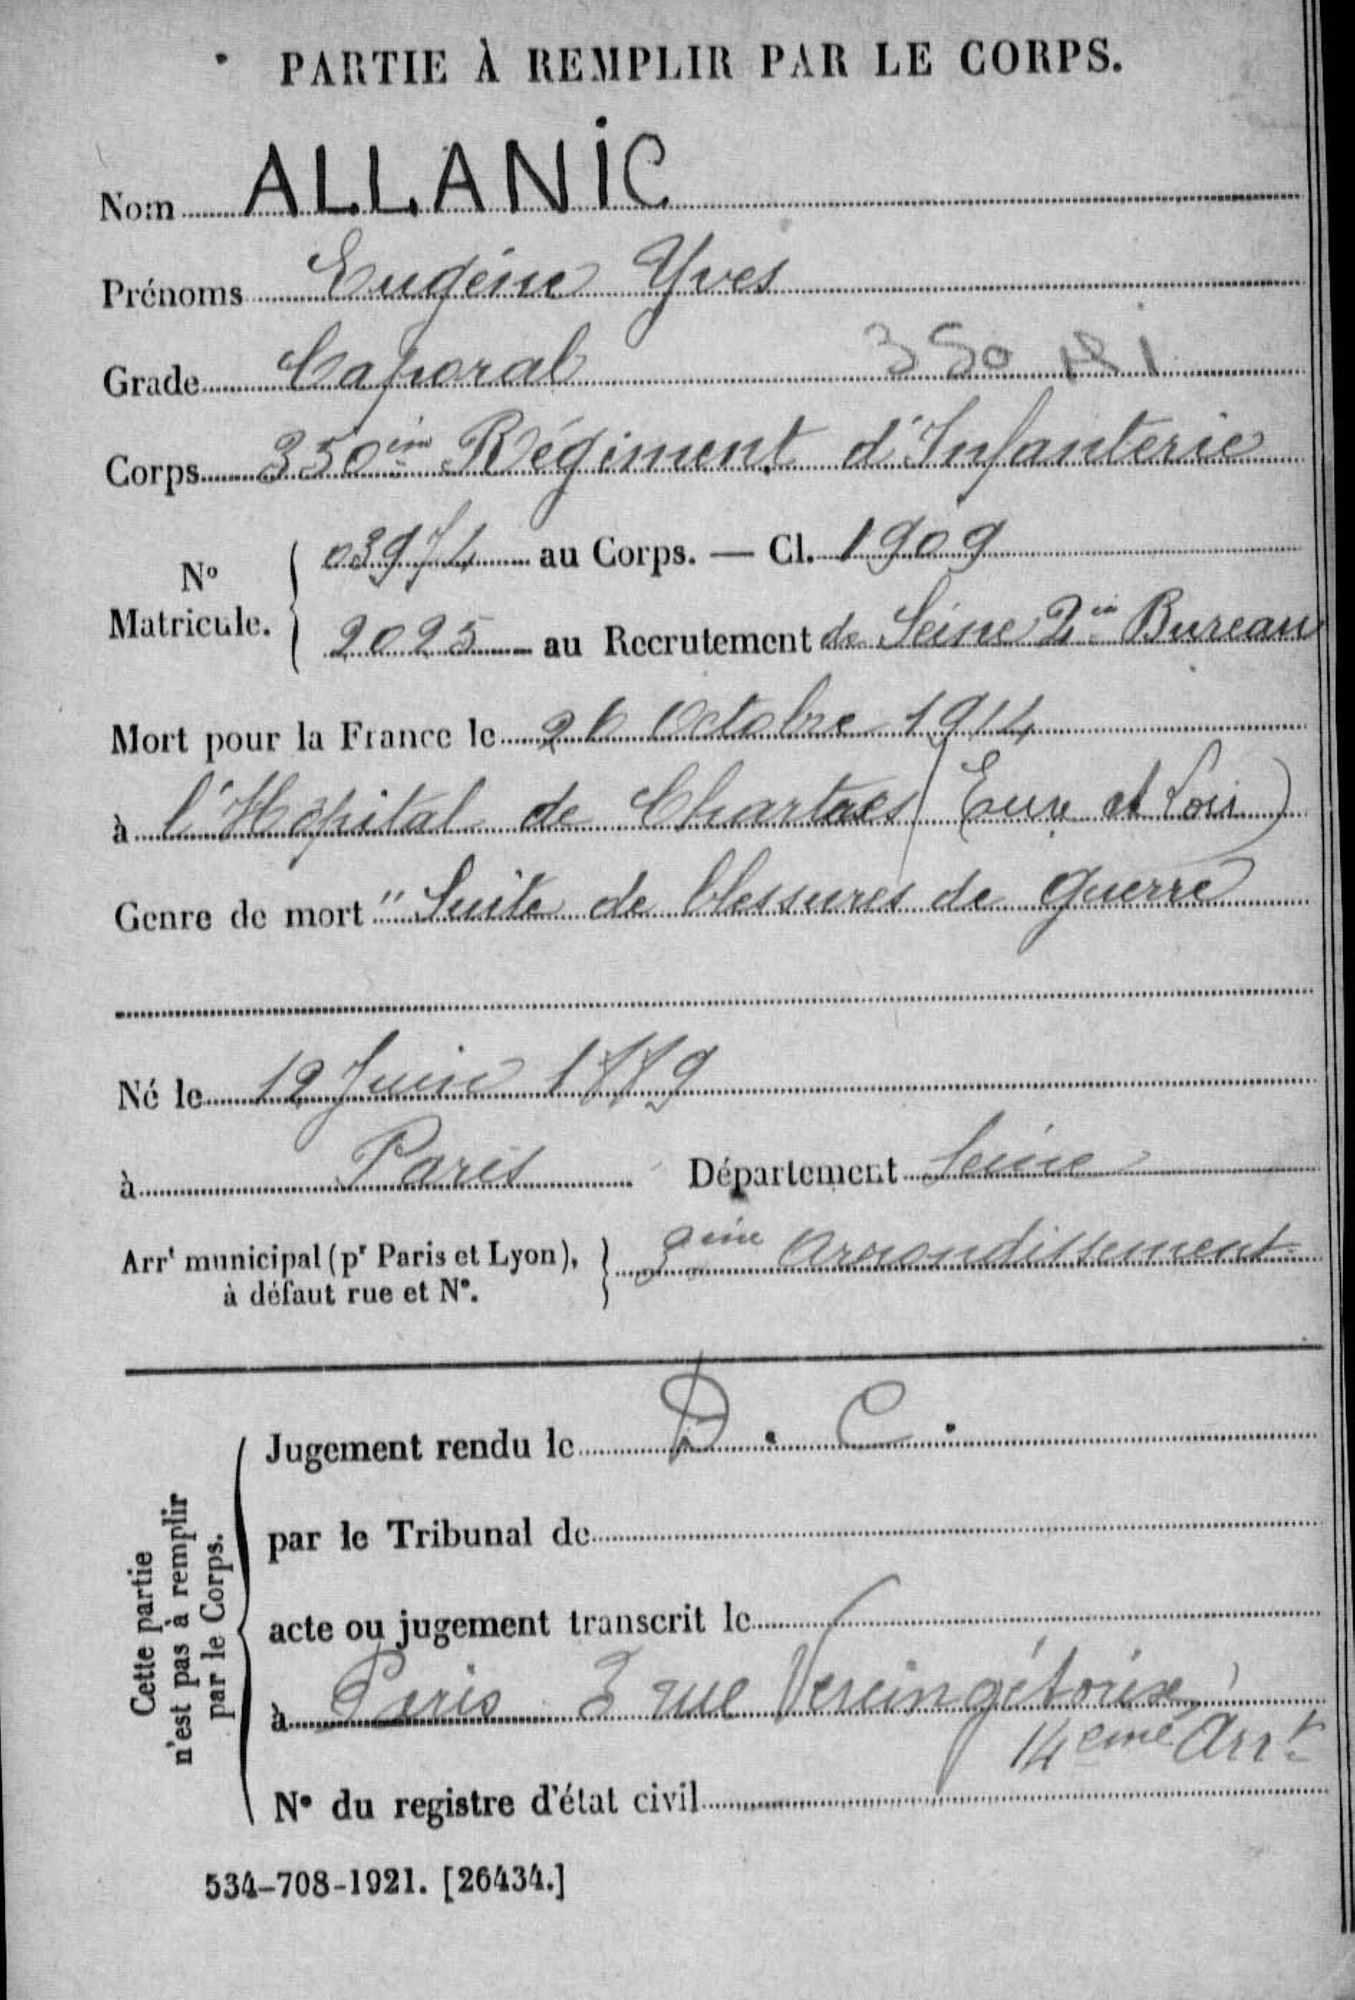 PARTIE À REMPLIR PAR LE CORPS.
Nom ALLANIC
Prénoms Eugène Yves
Grade Caporal 350 RI
Corps 350ème Régiment d'Infanterie
No Matricule. { 03974 au Corps. — Cl. 1909
2025 au Recrutement de Seine 2e Bureau
Mort pour la France le 26 Octobre 1914
à l'Hôpital de Chartres (Eure et Loir)
Genre de mort "Suite de blessures de guerre
Né le 12 Juin 1889
à Paris Département Seine
Arrt municipal (pr Paris et Lyon), à défaut rue et No. } arrondissement
Cette partie n'est pas à remplir par le Corps.
Jugement rendu le D. C.
par le Tribunal de
acte ou jugement transcrit le
à Paris 3 rue Vercingétorix
14eme Arrt
No du registre d'état civil
534-708-1921. [26434.]